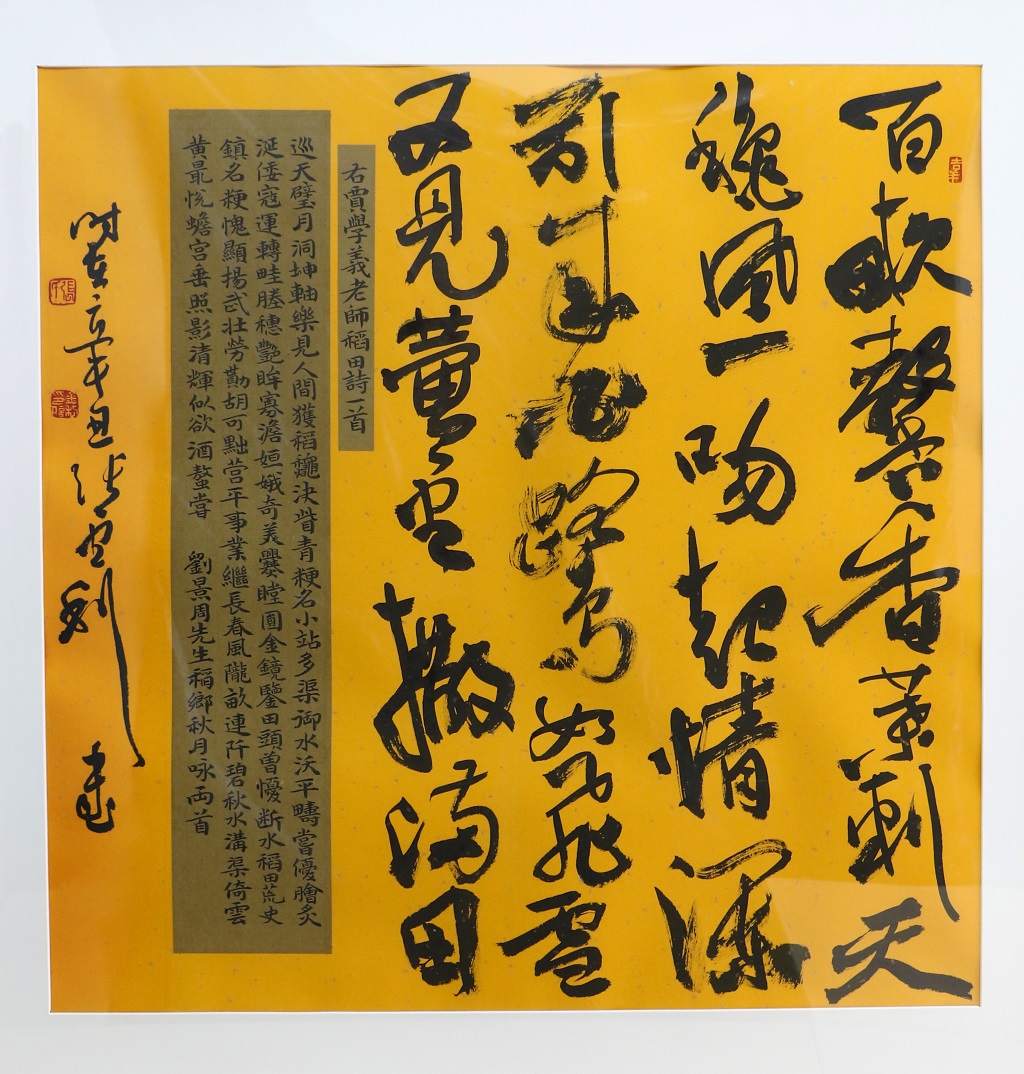 百畝馨香葉刺天
穐風一吻起情
鷺如飛雪
又見黄金撒满田
右賈學義老師稻田詩一首
巡天璧月洞坤軸樂見人間獲稻龝決眥青粳名小站多渠御水沃平疇嘗優膾炙
涎倭寇運轉畦塍穗艷眸寡澹姮娥奇美爨瞠圓金鏡鑒田頭曾懮断水稻田荒史
鎮名粳愧顯揚武壮勞勩胡可黜营平事業繼長春風隴畝連阡碧秋水溝渠倚雲
黄最悅蟾宮垂照影清輝似欲酒螯嘗 劉景周先生稻鄉秋月咏兩首
時在辛丑張金利書